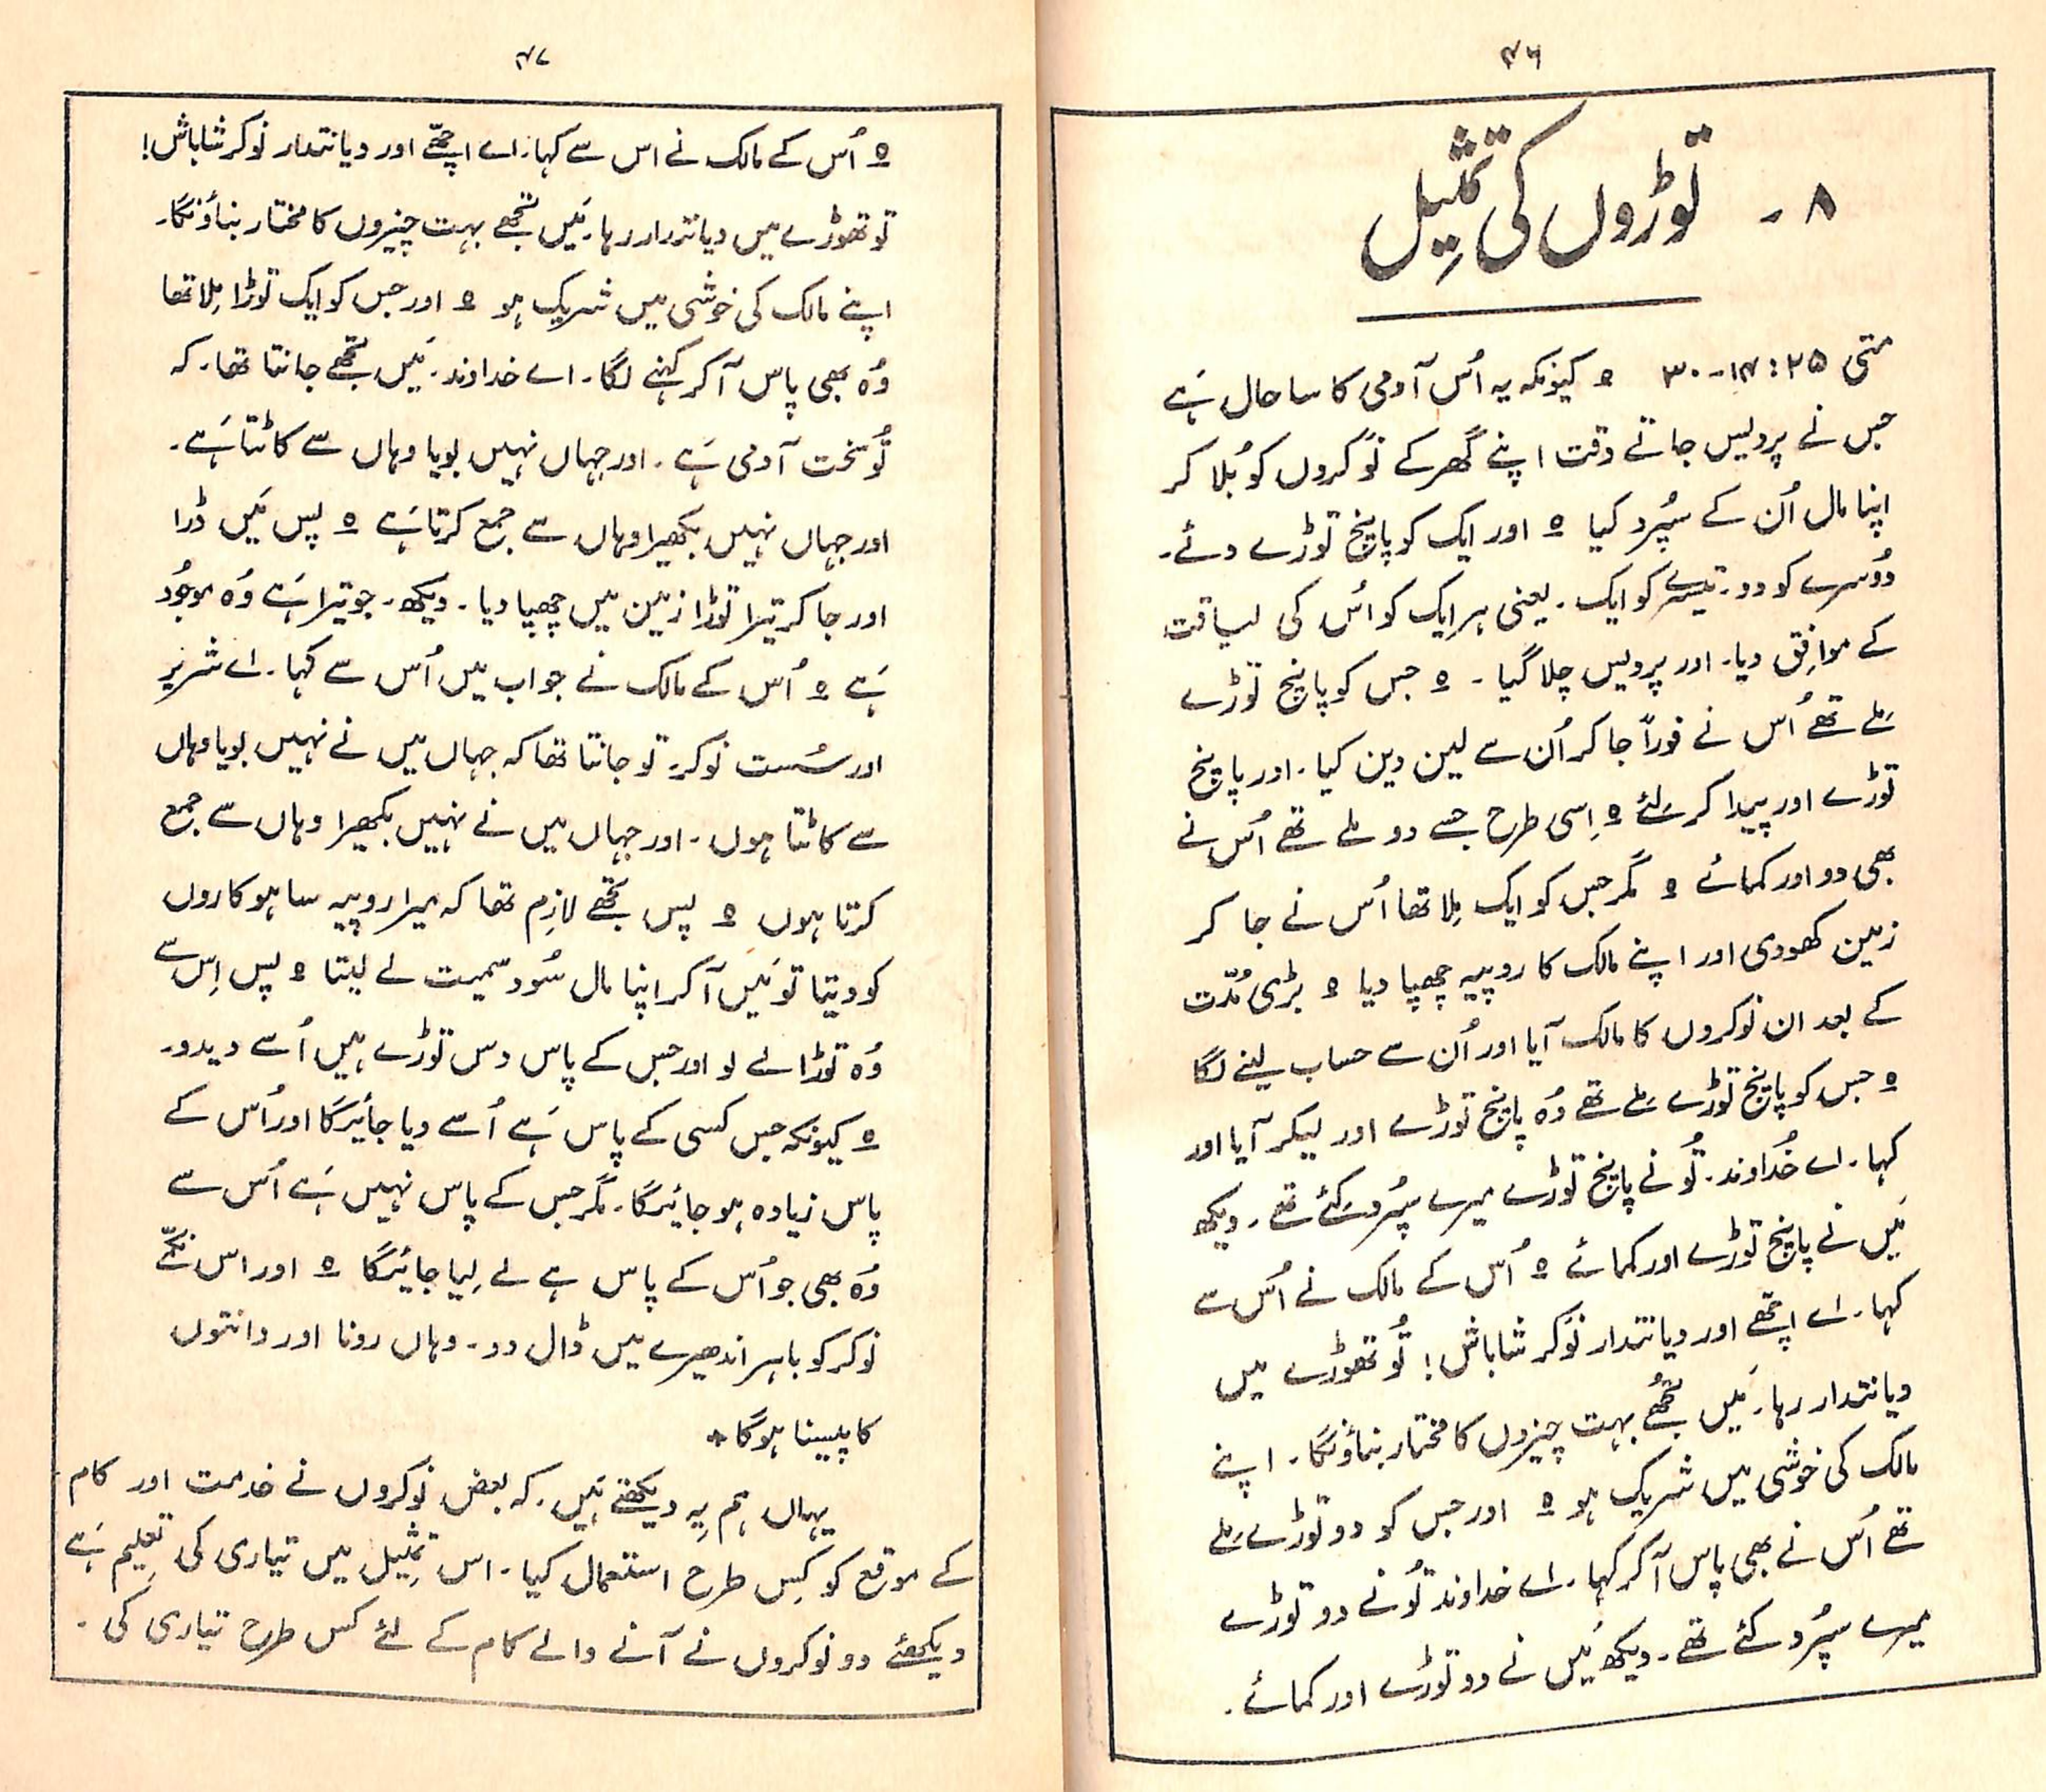 ۴۶
۸ - توڑوں کی تمثیل
متی ۲۵: ۱۴-۳۰ ه کیونکہ یہ اُس آدمی کا سا حال ہَے
جس نے پردیس جاتے وقت اپنے گھر کے نوَکروں کو بُلا کر
اپنا مال اُن کے سپُرد کیا ه اور ایک کو پانچ توڑے دئے۔
دُوسرے کو دو۔ تیسرے کو ایک۔ یعنی ہر ایک کو اُس کی لیاقت
کے موافِق دیا۔ اور پردیس چلا گیا۔ ه جس کو پانچ توڑے
مَلے تھے اُس نے فوراً جا کر اُن سے لین دین کیا۔ اور پانچ
توڑے اور پیدا کر لئے ه اِسی طرح جسے دو ملے تھے اُس نے
بھی دو اور کمائے ه مگر جس کو ایک مِلا تھا اُس نے جا کر
زمین کھودی اور اپنے مالک کا روپیہ چھپا دیا ه بڑی مُدّت
کے بعد ان نوکروں کا مالک آیا اور اُن سے حساب لینے لگا
ه جس کو پانچ توڑے مَلے تھے وُہ پانچ توڑے اور لیکر آیا اور
کہا۔ اے خُداوند۔ تُو نے پانچ توڑے میرے سپُرد کئے تھے۔ دیکھ
مَیں نے پانچ توڑے اور کمائے ه اُس کے مالک نے اُس سے
کہا۔ اے اچھّے اور دیانتدار نوَکر شاباش! تُو تھوڑے میں
دیانتدار رہا۔ مَیں تجھُے بہت چیزوں کا مختار بناؤنگا۔ اپنے
مالک کی خوشی میں شریک ہو ه اور جس کو دو توڑے مَلے
تھے اُس نے بھی پاس آ کر کہا۔ اے خداوند تُو نے دو توڑے
میرے سپُرد کئے تھے۔ دیکھ مَیں نے دو توڑے اور کمائے۔
۴۷
ه اُس کے مالک نے اس سے کہا۔ اے اچھّے اور دیانتدار نوکر شاباش!
تو تھوڑے میں دیانتدار رہا۔ مَیں تجھے بہت چیزوں کا مختار بناؤنگا۔
اپنے مالک کی خوشی میں شریک ہو ه اور جس کو ایک توڑا مِلا تھا
وُہ بھی پاس آ کر کہنے لگا۔ اے خداوند۔ مَیں تجھے جانتا تھا۔ کہ
تُو سخت آدمی ہَے۔ اور جہاں نہیں بویا وہاں سے کاٹتا ہَے۔
اور جہاں نہیں بکھیرا وہاں سے جمع کرتا ہَے ه پس مَیں ڈرا
اور جا کر تیرا توڑا زمین میں چھپا دیا۔ دیکھ۔ جو تیرا ہَے وُہ موجُود
ہَے ه اُس کے مالک نے جواب میں اُس سے کہا۔ اے شریر
اور سُست نوکر۔ تو جانتا تھا کہ جہاں میں نے نہیں بویا وہاں
سے کاٹتا ہوں۔ اور جہاں میں نے نہیں بکھیرا وہاں سے جمع
کرتا ہوں ه پس تجھے لازِم تھا کہ میرا روپیہ ساہوکاروں
کو دیتا تو مَیں آ کر اپنا مال سُود سمیت لے لیتا ه پس اِس سے
وُہ توڑا لے لو اور جس کے پاس دس توڑے ہیں اُسے دیدو۔
ه کیونکہ جس کسی کے پاس ہَے اُسے دیا جائیگا اور اُس کے
پاس زیادہ ہو جائیگا۔ مگر جس کے پاس نہیں ہَے اُس سے
وُہ بھی جو اُس کے پاس ہے لے لِیا جائیگا ه اور اس نکمّے
نوکر کو باہر اندھیرے میں ڈال دو۔ وہاں رونا اور دانتوں
کا پیسنا ہوگا +
یہاں ہم یِہ دیکھتے ہَیں۔ کہ بعض نوکروں نے خدمت اور کام
کے موقع کو کِس طرح استعمال کیا۔ اس تمثِیل میں تیاری کی تعلِیم ہَے
دیکھئے دو نوکروں نے آنے والے کام کے لئے کس طرح تیاری کی۔